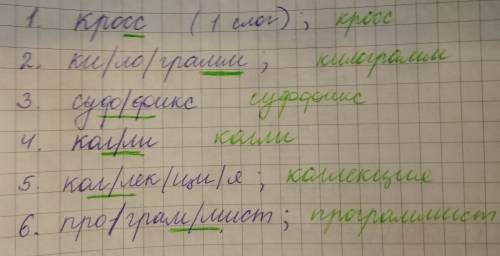 1. кросс (1 слог); кросс
2. ки/ло/грамм; килограмм
3. суф/фикс суффикс
4. кол/ли колли
5. кол/лек/ци/я; коллекция
6. про/грам/мист; программист